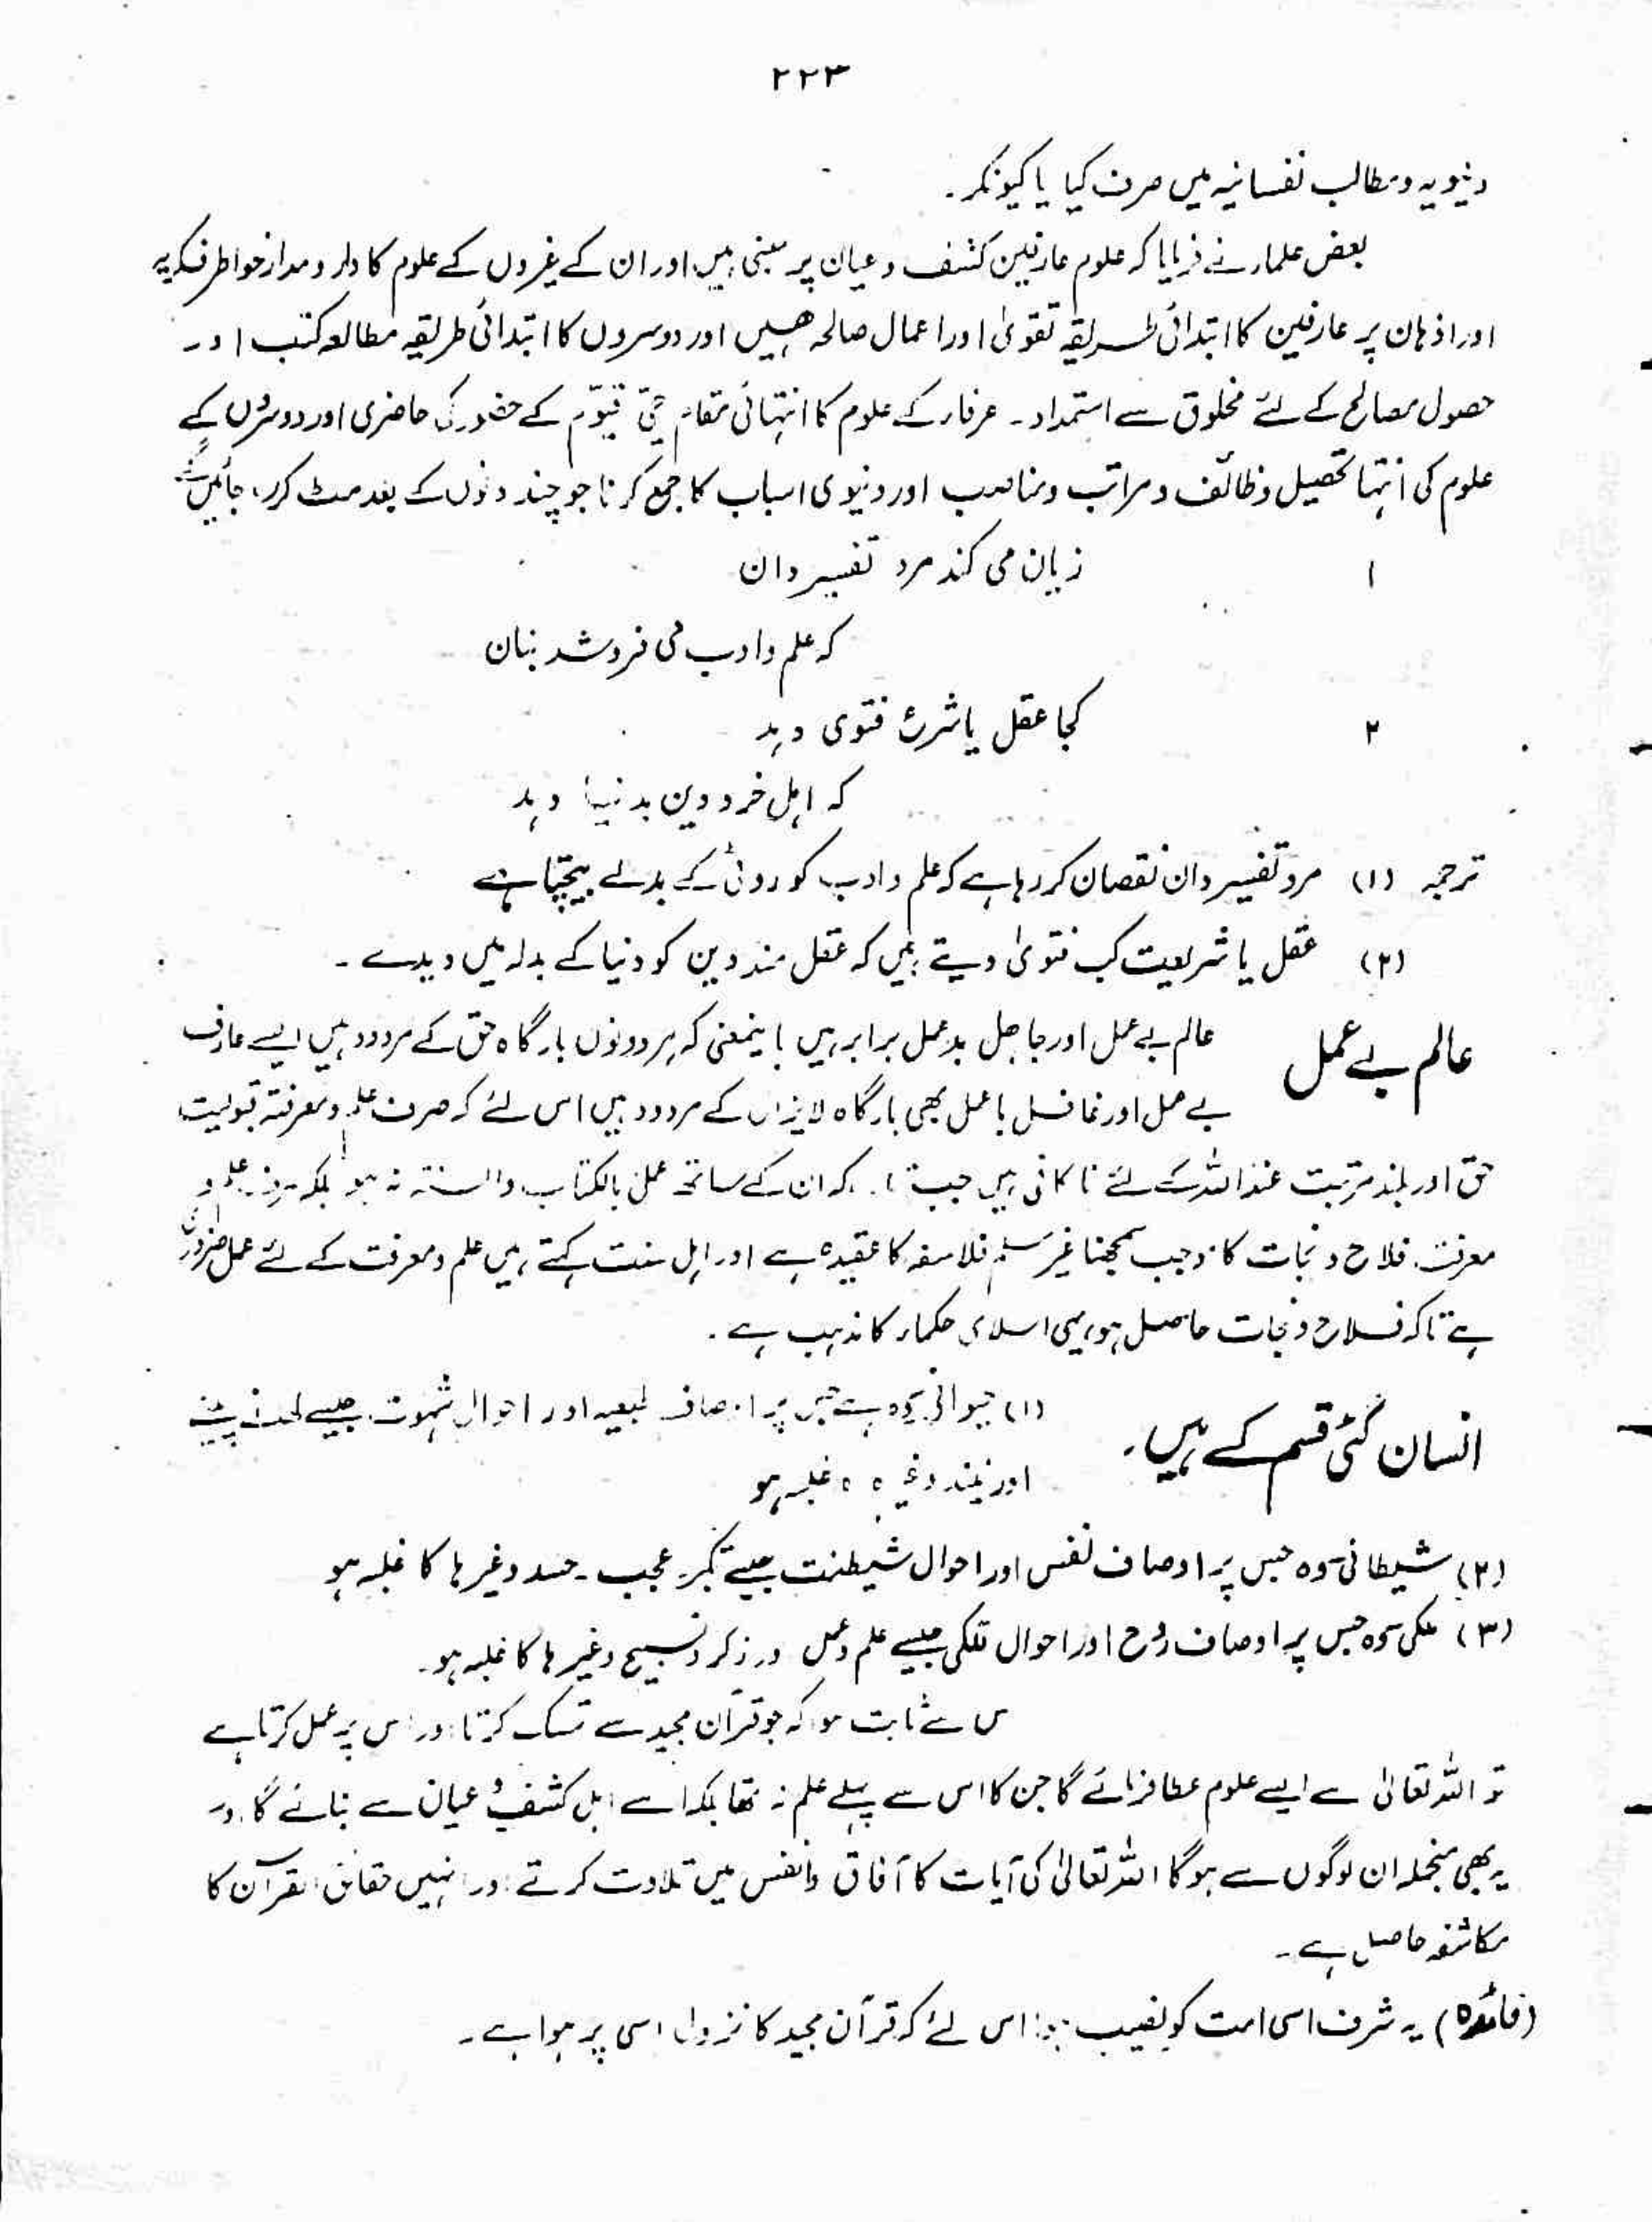 ۲۲۳
دنیویہ ومطالب نفسانیہ میں صرف کیا یا کیونکر۔
بعض علماء نے فرمایا کہ علوم عارفین کشف و عیان پر مبنی ہیں اور ان کے غیروں کے علوم کا دار و مدار خواطر فکریہ
اور اذہان پر عارفین کا ابتدائی طریقہ تقویٰ اور اعمال صالحہ ہیں اور دوسروں کا ابتدائی طریقہ مطالعہ کتب اور
حصول مصالح کے لئے مخلوق سے استمداد۔ عرفاء کے علوم کا انتہائی مقام حیّ قیوّم کے حضور کی حاضری اور دوسروں کے
علوم کی انتہا تحصیل وظائف و مراتب ومناصب اور دنیوی اسباب کا جمع کرنا جو چند دنوں کے بعد مٹ کر رہ جائیں گے
۱ زیان می کند مرد تفسیر دان
کہ علم وادب می فروشد بنان
۲ کجا عقل یا شرع فتوی دہد
کہ اہل خرد دین بدنیا دہد
ترجمہ (۱) مرد تفسیر دان نقصان کر رہا ہے کہ علم وادب کو روٹی کے بدلے بیچتا ہے
(۲) عقل یا شریعت کب فتویٰ دیتے ہیں کہ عقل مند دین کو دنیا کے بدلہ میں دیدے ۔
عالم بے عمل عالم بے عمل اور جاہل بدعمل برابر ہیں بایںمعنی کہ ہر دونوں بارگاہ حق کے مردود ہیں ایسے عارف
بے عمل اور غافل باعمل بھی بارگاہ لایزال کے مردود ہیں اس لئے کہ صرف علم ومعرفتہ قبولیت
حق اور بلند مرتبت عنداللہ کے لئے ناکافی ہیں جب تک کہ ان کے ساتھ عمل بالکتاب والسنتہ نہ ہو بلکہ صرف علم و
معرفت فلاح و نجات کا موجب سمجھنا غیر مسلم فلاسفہ کا عقیدہ ہے اور اہل سنت کہتے ہیں علم ومعرفت کے لئے عمل ضروری
ہے تاکہ فلاح ونجات حاصل ہو یہی اسلامی حکماء کا مذہب ہے ۔
انسان کئی قسم کے ہیں۔ (۱) حیوانی وہ ہے جس پر اوصاف طبعیہ اور احوال شہوت جیسے کھانے پینے
اور نیند وغیرہ کا غلبہ ہو
(۲) شیطانی وہ جس پر اوصاف نفس اور احوال شیطنت جیسے تکبر۔ عجب ۔حسد وغیرہا کا غلبہ ہو
(۳) ملکی وہ جس پر اوصاف روح اور احوال ملکی جیسے علم وعمل اور ذکر و تسبیح وغیرہا کا غلبہ ہو۔
اس سے ثابت ہوا کہ جو قرآن مجید سے تمسک کرتا اور اس پر عمل کرتا ہے
تو اللہ تعالیٰ اسے ایسے علوم عطا فرمائے گا جن کا اس سے پہلے علم نہ تھا بلکہ اسے اہل کشف و عیان سے بنائے گا اور
یہ بھی منجملہ ان لوگوں سے ہوگا اللہ تعالیٰ کی آیات کا آفاق وانفس میں تلاوت کرتے اور انہیں حقائق القرآن کا
مکاشفہ حاصل ہے ۔
(فائدہ) یہ شرف اسی امت کو نصیب ہوا اس لئے کہ قرآن مجید کا نزول اسی پر ہوا ہے ۔